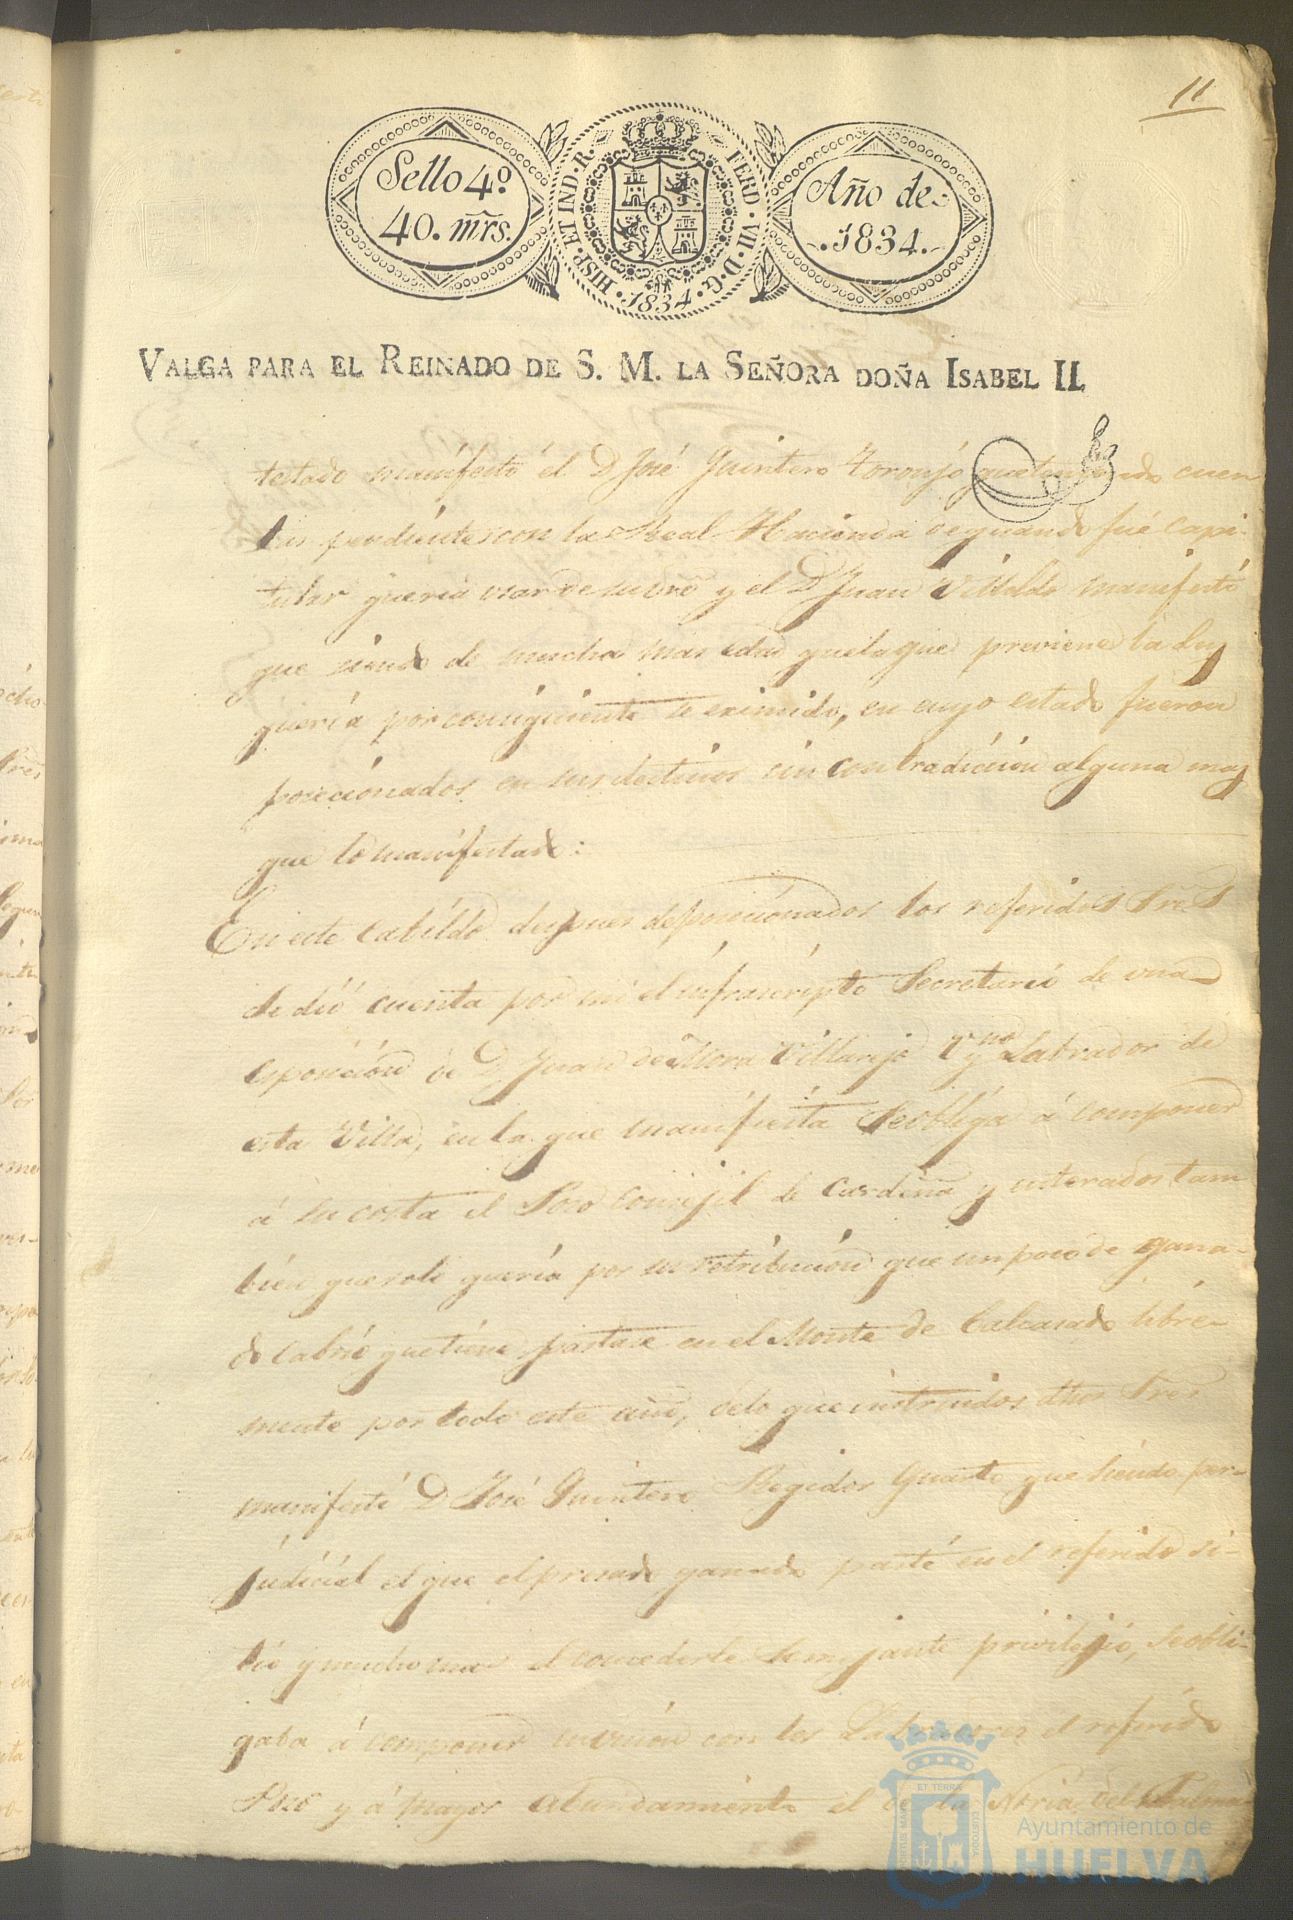 11
Sello 4º
40. mrs.
HISP. ET IND. R. FERD. VII. D. G. 1834.
Año de
1834.
VALGA PARA EL REINADO DE S. M. LA SEÑORA DOÑA ISABEL II.
testado manifestó él D José Quintero Toronjo que teniendo cuen
tas pendientes con la Real Hacienda de quando fué Capi-
tular queria usar de su dro y el D Juan Villalda manifestó
que siendo de mucha mas edad que la que previene la Ley
quería por consiguiente se eximido, en cuyo estado fueron
posecionados en sus destinos sin contradición alguna mas
que lo manifestado:
En este Cabildo despues de posecionados los referidos Sres
se dió cuenta por mi el infrascripto Secretario de una
esposición de D Juan de Mora Villarejo Vno y Labrador de
esta Villa, en la que manifiesta se obliga á componer
á su costa el Poso Concejil de Cardeña y enterados tam
bien que solo quería por su retribución que un poco de gana-
do Cabrio que tiene pastase en el Monte de Calcasado libre-
mente por todo este año, de lo que instruidos dhos Sres
manifestó D José Quintero Regidor Quarto que siendo per-
judicial el que el presado ganado paste en el referido si-
tio y mucho mas el concederle semejante privilegio, se obli-
gaba á componer en union con los Labradores el referido
Poso y á mayor abundamiento el de la Noria del
ET TERRÆ
PORTUS MARIS
CUSTODIA
Ayuntamiento de
HUELVA